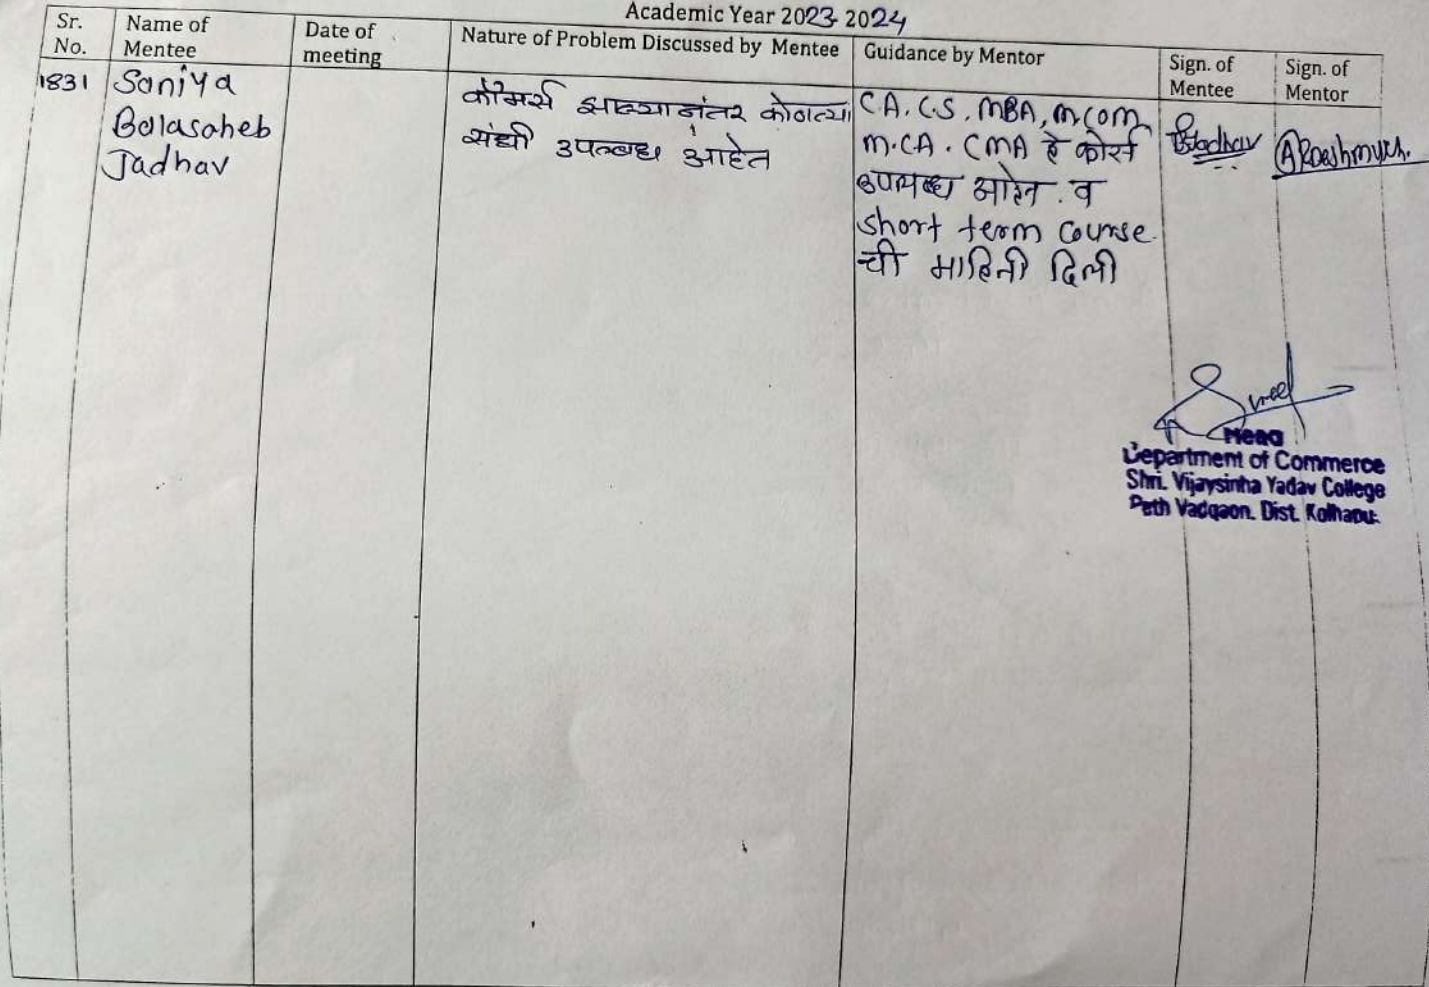 Academic Year 2023-2024
Sr. No.
Name of Mentee
Date of meeting
Nature of Problem Discussed by Mentee
Guidance by Mentor
Sign. of Mentee
Sign. of Mentor
1831
Saniya
Balasaheb
Jadhav
कॉमर्स झाल्यानंतर कोणत्या
संधी उपलब्ध आहेत
C.A. C.S. MBA, M.COM
M.CA. CMA हे कोर्स
उपलब्ध आहेत. व
short term course.
ची माहिती दिली
BSJadhav
Head
Department of Commerce
Shri. Vijaysinha Yadav College
Peth Vadgaon. Dist. Kolhapur.